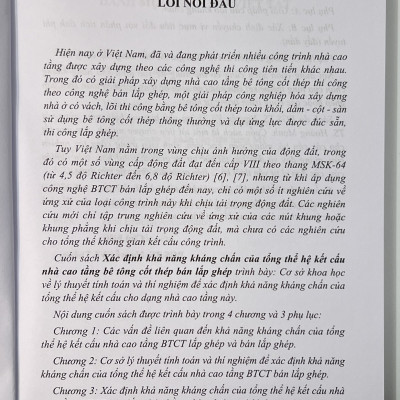 LỜI NÓI ĐẦU
Hiện nay ở Việt Nam, đã và đang phát triển nhiều công trình nhà cao
tầng được xây dựng theo các công nghệ thi công tiên tiến khác nhau.
Trong đó có giải pháp xây dựng nhà cao tầng bê tông cốt thép thi công
theo công nghệ bán lắp ghép, một giải pháp công nghiệp hóa xây dựng
nhà ở có vách, lõi thi công bằng bê tông cốt thép toàn khối, dầm - cột - sàn
sử dụng bê tông cốt thép thông thường và dự ứng lực được đúc sẵn,
thi công lắp ghép.
Tuy Việt Nam nằm trong vùng chịu ảnh hưởng của động đất, trong
đó có một số vùng cấp động đất đạt đến cấp VIII theo thang MSK-64
(từ 4,5 độ Richter đến 6,8 độ Richter) [6], [7], nhưng từ khi áp dụng
công nghệ BTCT bán lắp ghép đến nay, chỉ có một số ít nghiên cứu về
ứng xử của loại công trình này khi chịu tải trọng động đất. Các nghiên
cứu mới chỉ tập trung nghiên cứu về ứng xử của các nút khung hoặc
khung phẳng khi chịu tải trọng động đất, mà chưa có các nghiên cứu
cho tổng thể không gian kết cấu công trình.
Cuốn sách Xác định khả năng kháng chấn của tổng thể hệ kết cấu
nhà cao tầng bê tông cốt thép bán lắp ghép trình bày: Cơ sở khoa học
về lý thuyết tính toán và thí nghiệm để xác định khả năng kháng chấn của
tổng thể hệ kết cấu cho dạng nhà cao tầng này.
Nội dung cuốn sách được trình bày trong 4 chương và 3 phụ lục:
Chương 1: Các vấn đề liên quan đến khả năng kháng chấn của tổng
thể hệ kết cấu nhà cao tầng BTCT lắp ghép và bán lắp ghép.
Chương 2: Cơ sở lý thuyết tính toán và thí nghiệm để xác định khả năng
kháng chấn của tổng thể hệ kết cấu nhà cao tầng BTCT bán lắp ghép.
Chương 3: Xác định khả năng kháng chấn của tổng thể hệ kết cấu nhà